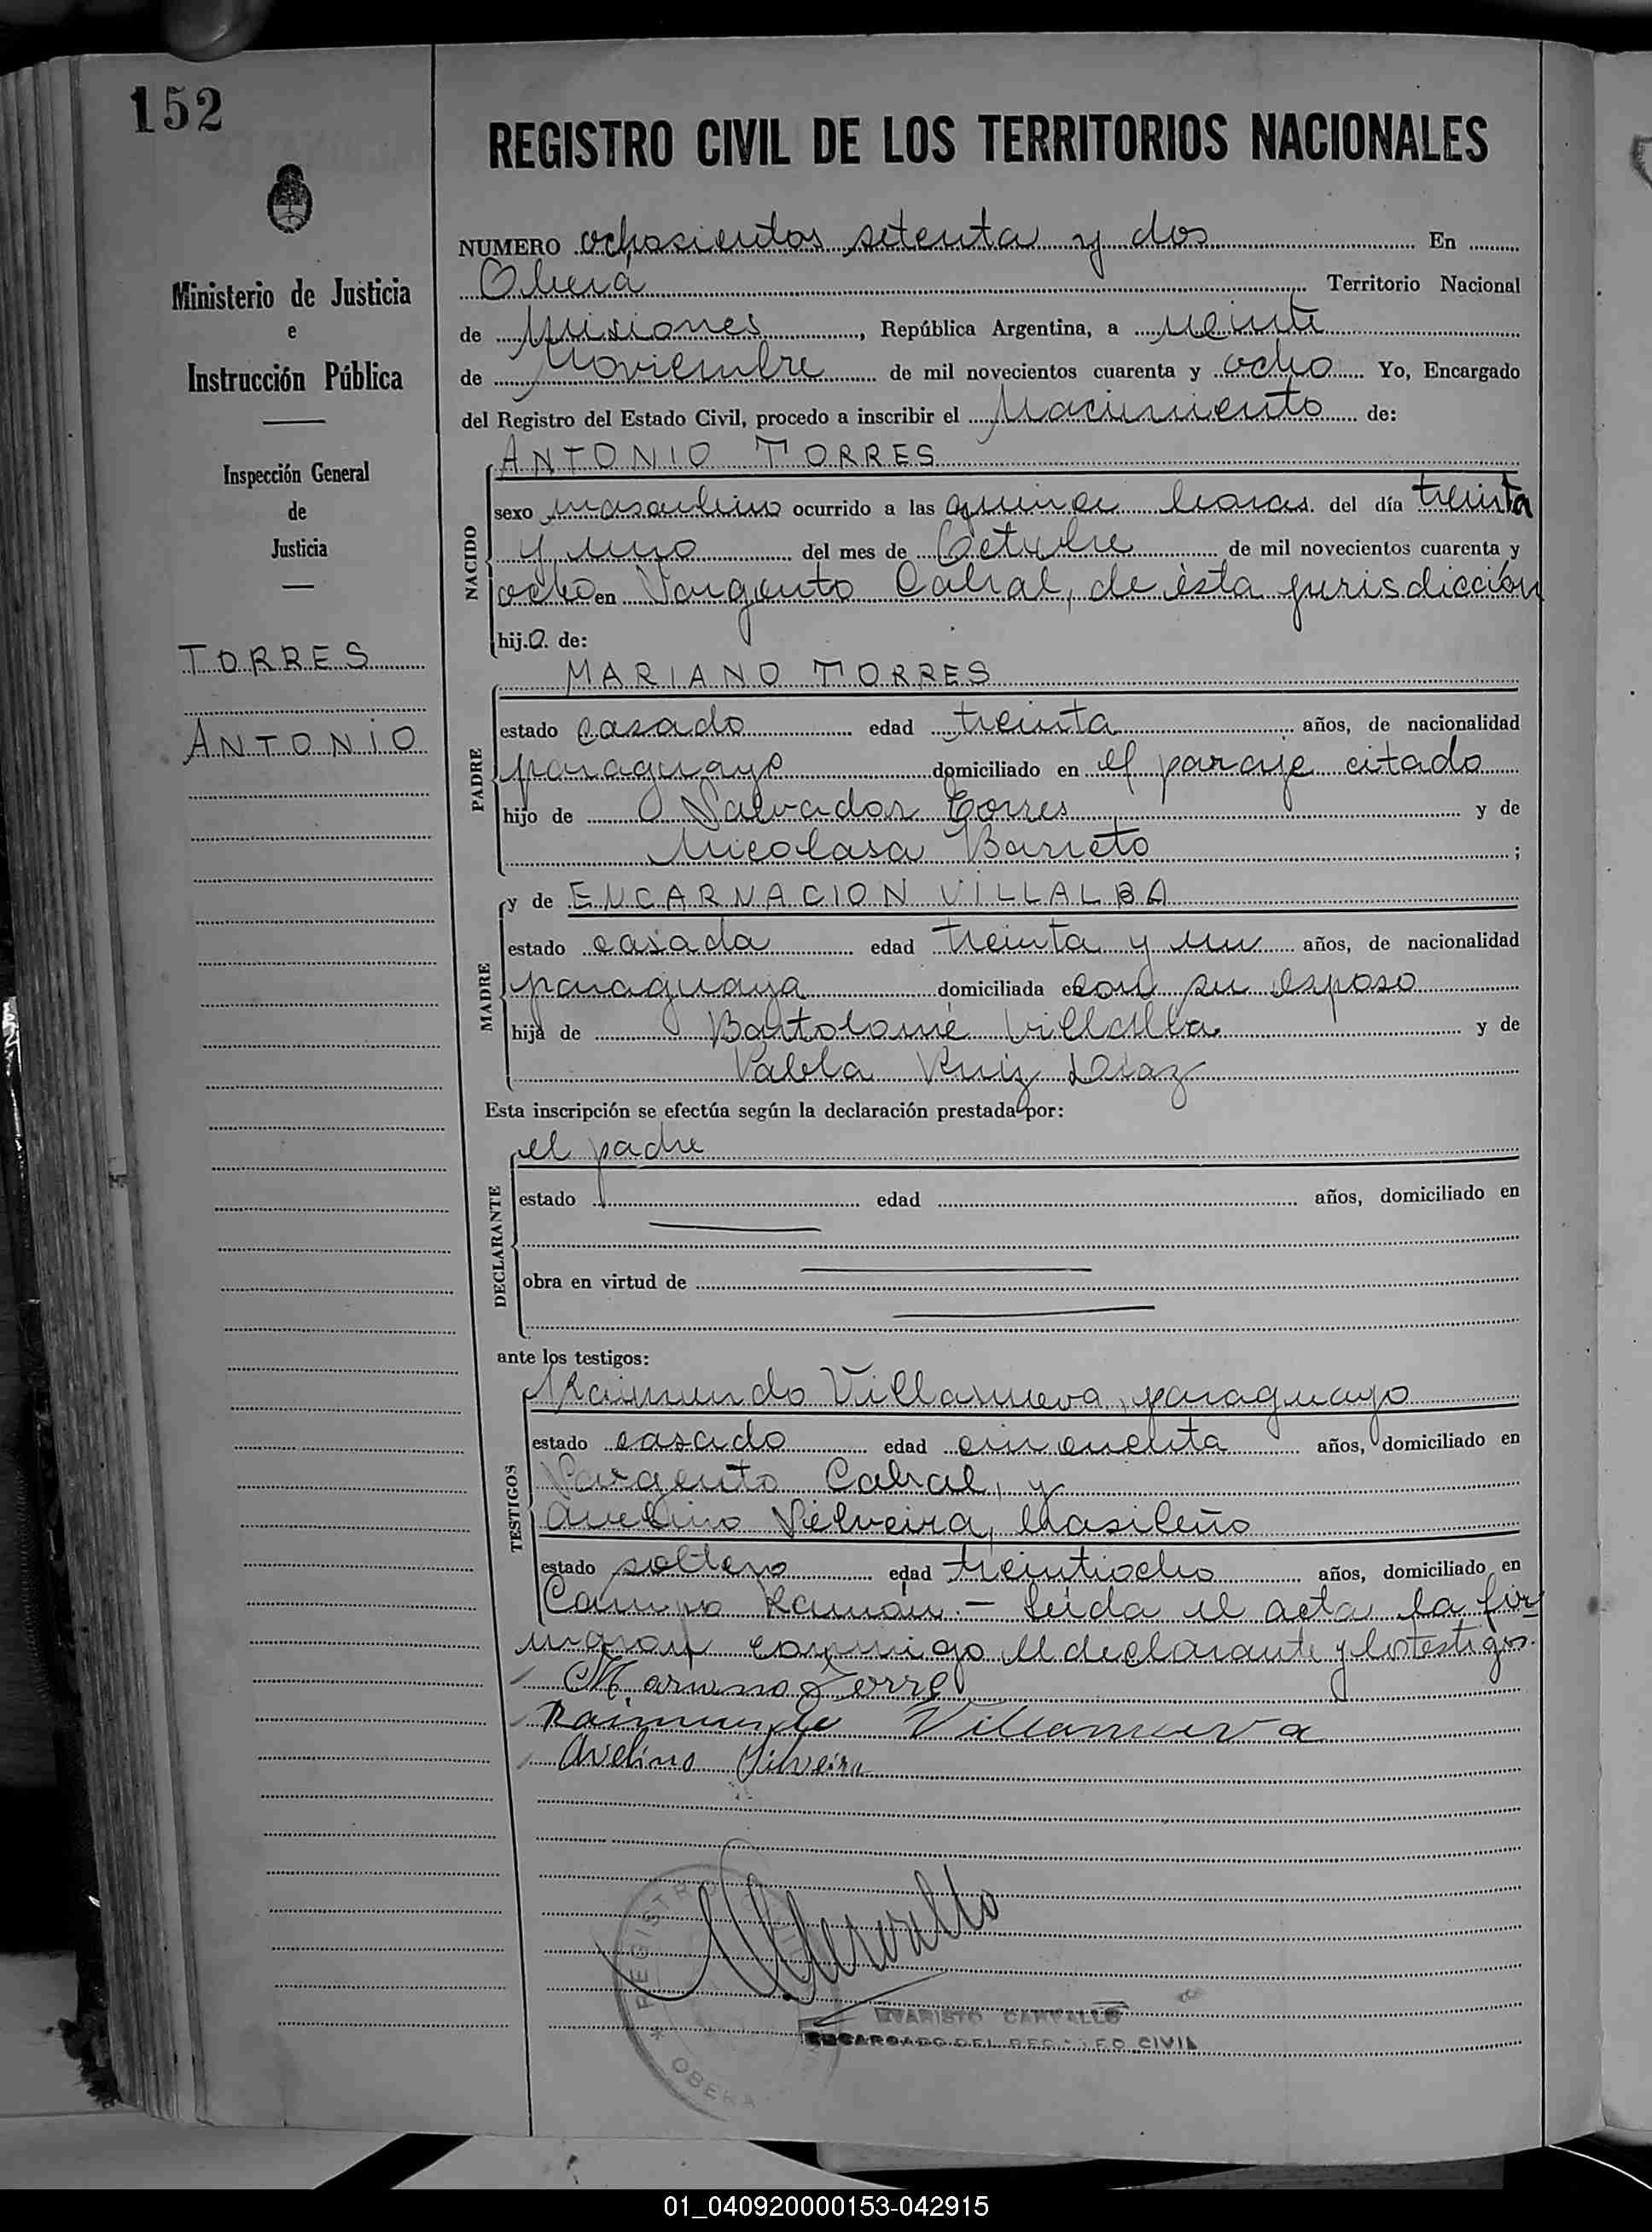 152
REGISTRO CIVIL DE LOS TERRITORIOS NACIONALES
Ministerio de Justicia
e
Instrucción Pública
Inspección General
de
Justicia
TORRES
ANTONIO
NUMERO ochosientos setenta y dos En
Oberá Territorio Nacional
de Misiones, República Argentina, a veinte
de Noviembre de mil novecientos cuarenta y ocho Yo, Encargado
del Registro del Estado Civil, procedo a inscribir el Nacimiento de:
ANTONIO TORRES
NACIDO
sexo masculino ocurrido a las quince horas del día treinta
y uno del mes de Octubre de mil novecientos cuarenta y
ocho en Sargento Cabral, de ésta jurisdicción
hijo de:
MARIANO TORRES
PADRE
estado casado edad treinta años, de nacionalidad
paraguayo domiciliado en el paraje citado
hijo de Salvador Torres y de
Nicolasa Barreto ;
y de ENCARNACION VILLALBA
MADRE
estado casada edad treinta y un años, de nacionalidad
paraguaya domiciliada en con su esposo
hija de Bartolomé Villalba y de
Pabla Ruiz Diaz
Esta inscripción se efectúa según la declaración prestada por:
el padre
DECLARANTE
estado edad años, domiciliado en
obra en virtud de
ante los testigos:
Raimundo Villanueva, paraguayo
TESTIGOS
estado casado edad cincuenta años, domiciliado en
Sargento Cabral, y
Avelino Silveira, brasileño
estado soltero edad treintiocho años, domiciliado en
Campo Ramón.- Leida el acta la fir
maron conmigo el declarante y los testigos.
Mariano Torre
Raimundo Villanueva
Avelino Silveira
REGISTR
OBERA
EVARISTO CARVALLO
ENCARGADO DEL REGISTRO CIVIL
01_040920000153-042915